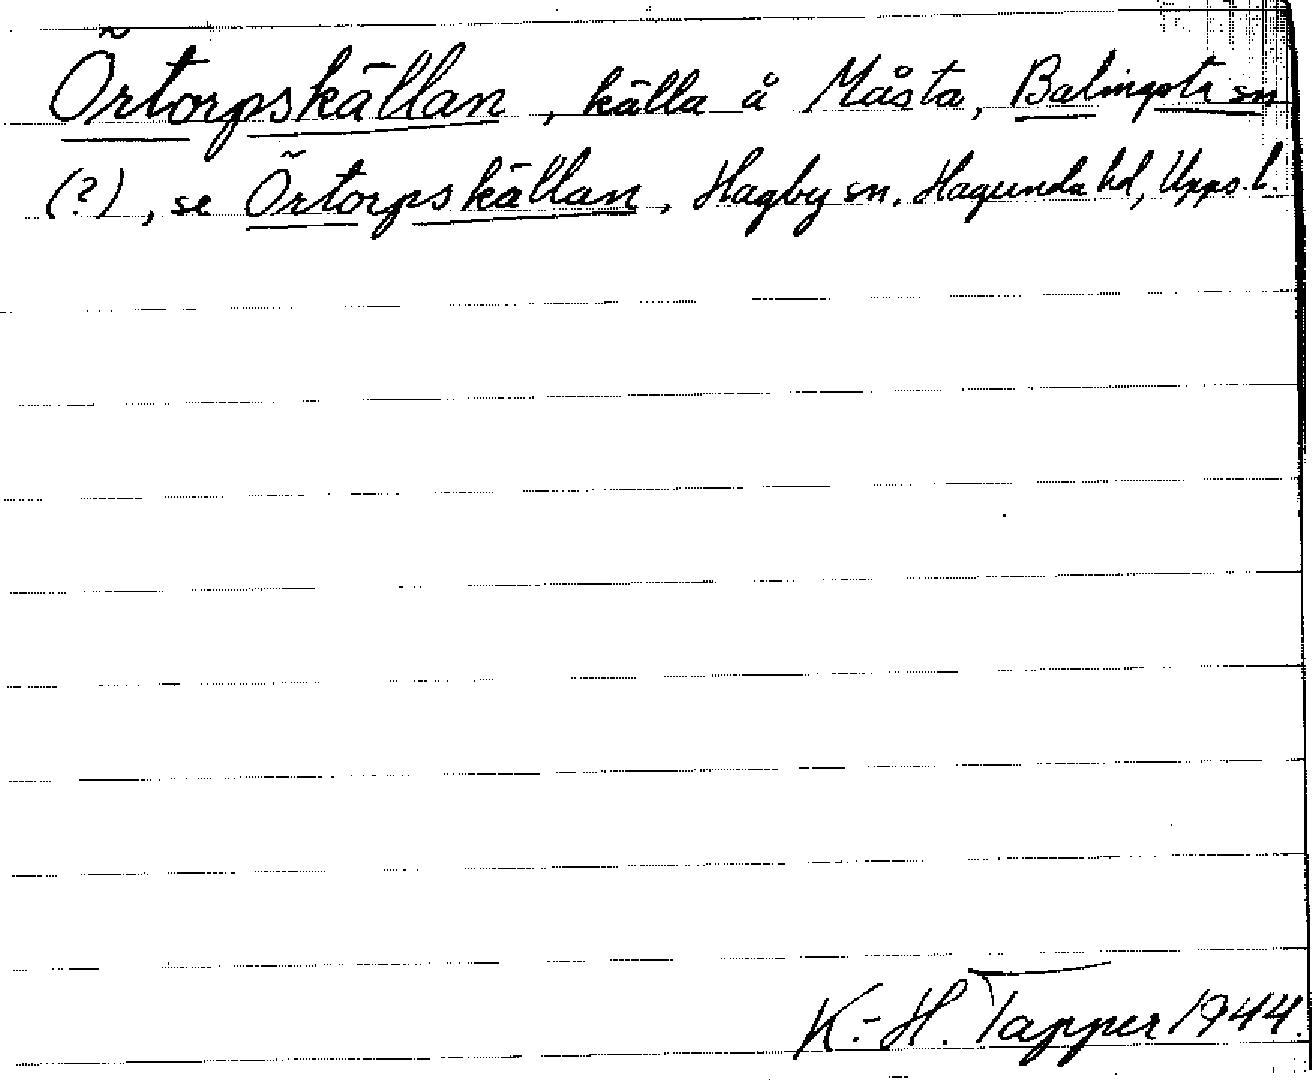 Örtorpskällan, källa å Måsta, Balingsta sn
(?), se Örtorpskällan, Hagby sn. Hagunda hd, Upps. l.
K.-H. Tapper 1944.